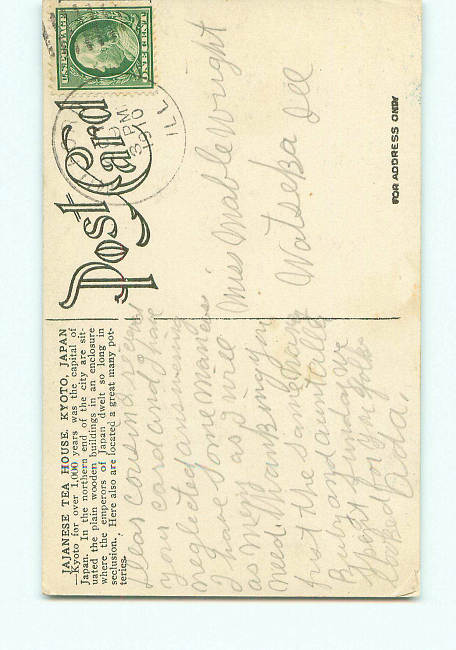 JAJANESE TEA HOUSE, KYOTO, JAPAN
—Kyoto for over 1,000 years was the capital of
Japan. In the northern end of the city are sit-
uated the plain wooden buildings in an enclosure
where the emperors of Japan dwelt so long in
seclusion. Here also are located a great many pot-
teries.
Post Card
U.S. POSTAGE
ONE CENT
PM
1910
ILL
FOR ADDRESS ONLY
Miss Mable Wright
Watseka Ill
Dear cousin
your card and I have
neglected
I have some
as I will
need. Thanking you
just the same
Ruby and aunt Alla
for
Ada.